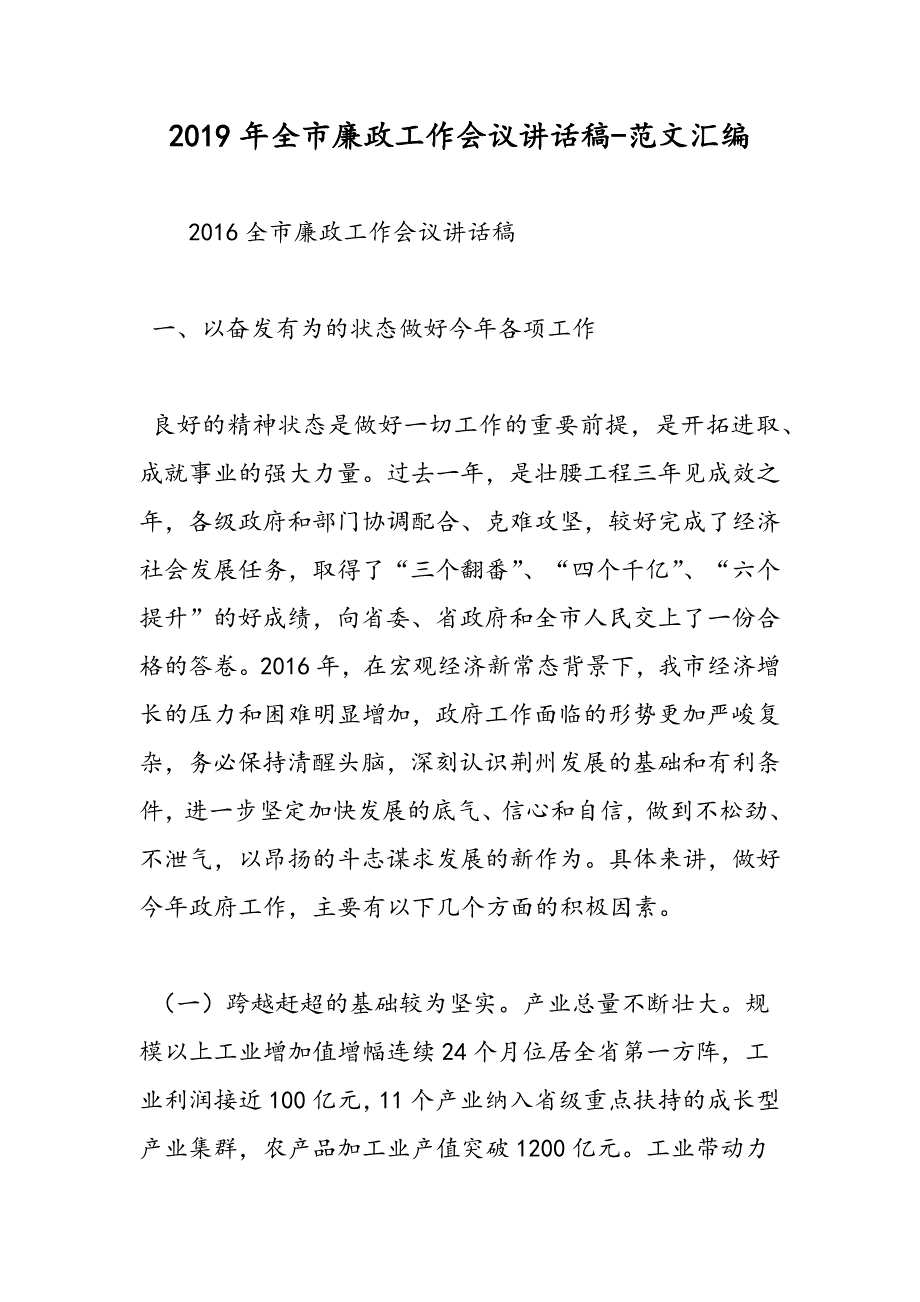 2019年全市廉政工作会议讲话稿-范文汇编
2016全市廉政工作会议讲话稿
一、以奋发有为的状态做好今年各项工作
良好的精神状态是做好一切工作的重要前提，是开拓进取、
成就事业的强大力量。过去一年，是壮腰工程三年见成效之
年，各级政府和部门协调配合、克难攻坚，较好完成了经济
社会发展任务，取得了“三个翻番”、“四个千亿”、“六个
提升”的好成绩，向省委、省政府和全市人民交上了一份合
格的答卷。2016年，在宏观经济新常态背景下，我市经济增
长的压力和困难明显增加，政府工作面临的形势更加严峻复
杂，务必保持清醒头脑，深刻认识荆州发展的基础和有利条
件，进一步坚定加快发展的底气、信心和自信，做到不松劲、
不泄气，以昂扬的斗志谋求发展的新作为。具体来讲，做好
今年政府工作，主要有以下几个方面的积极因素。
（一）跨越赶超的基础较为坚实。产业总量不断壮大。规
模以上工业增加值增幅连续24个月位居全省第一方阵，工
业利润接近100亿元，11个产业纳入省级重点扶持的成长型
产业集群，农产品加工业产值突破1200亿元。工业带动力